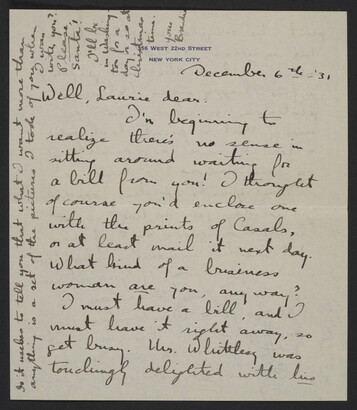 356 WEST 22ND STREET
NEW YORK CITY
December 6th - '31
Well, Laurie dear.
I'm beginning to
realize there's no sense in
sitting around waiting for
a bill from you! I thought
of course you'd enclose one
with the prints of Casals,
or at least mail it next day.
What kind of a business
woman are you, any way?
I must have a bill, and I
must have it right away, so
get busy. Mrs. Whittlesey was
touchingly delighted with his
Is it useless to tell you that what I want more than
anything is a set of the pictures I took of you when
I was
with you?
Please
Santa!
I'll be
in Washing
ton for a
day or so at
Christmas
time.
Your